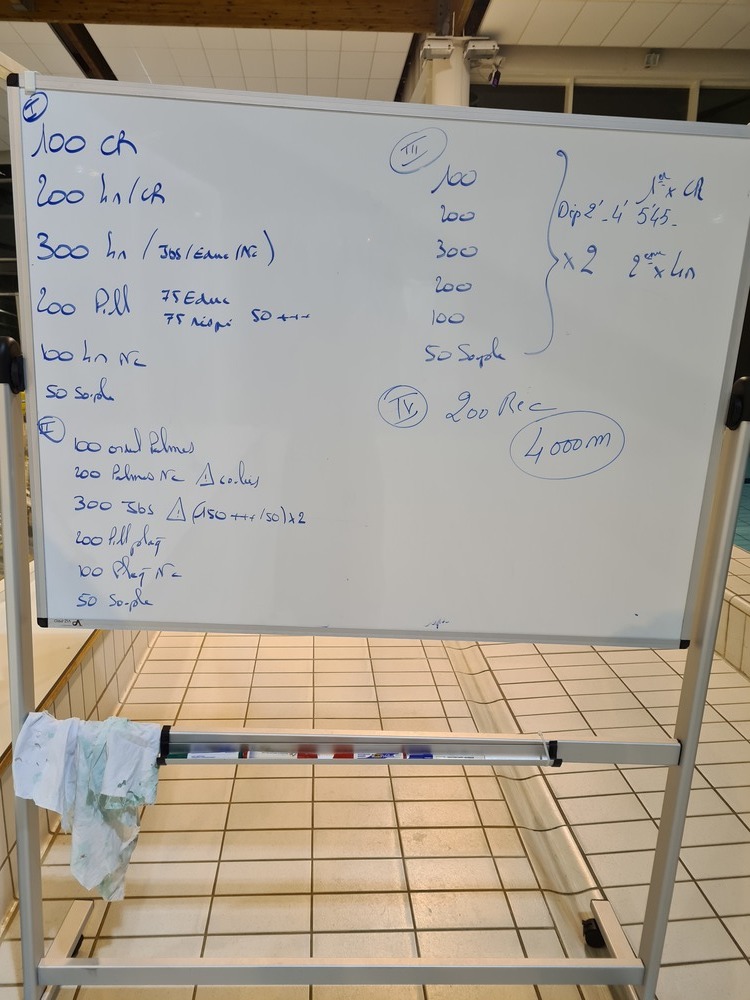 I
100 CR
200 4n/CR
300 4n (Jbs/Educ/Nc)
200 Pull 75 Educ
75 respi 50 +++
100 4n Nc
50 Souple
II
100 ond Palmes
200 Palmes Nc ⚠ coulées
300 Jbs ⚠ (150 +++/50) x 2
200 Pull plaq
100 Plaq Nc
50 Souple
III
100
200
300
200
100
50 Souple
x 2
1er x CR
Dep 2' - 4' 5'45 -
2eme x 4n
IV 200 Rec
4000m